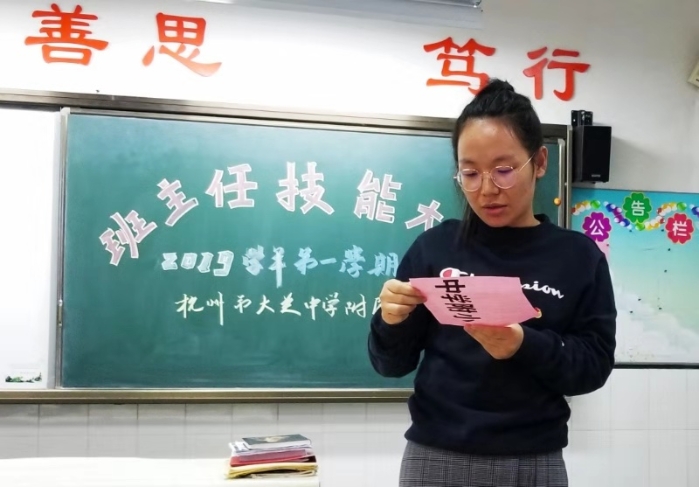 善思 笃行
班主任技能
2019学年第一学期
杭州市大关中学附
公告栏